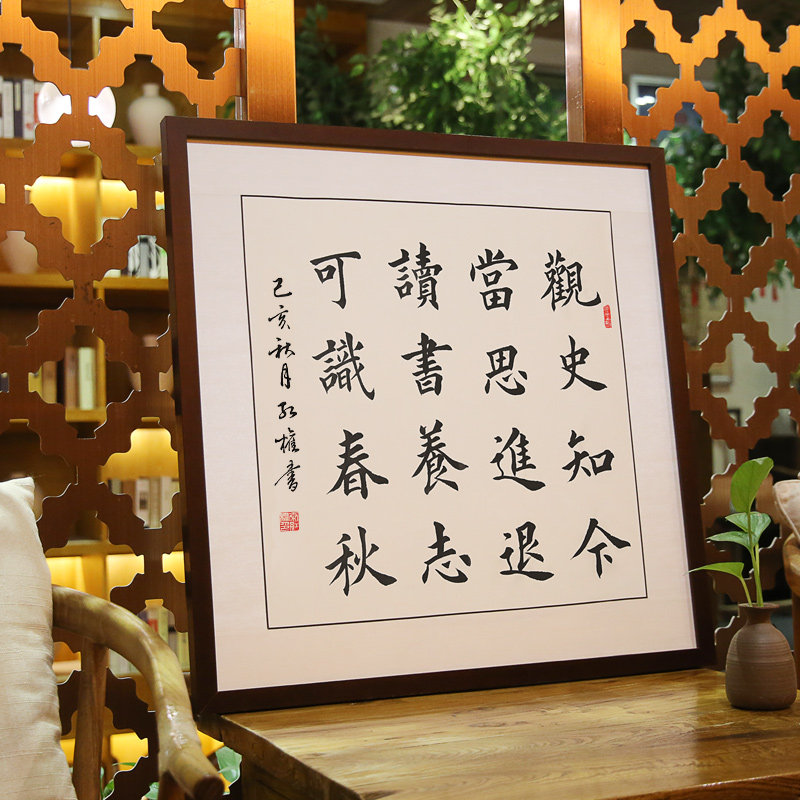 觀史知今
當思進退
讀書養志
可識春秋
己亥秋月 權書